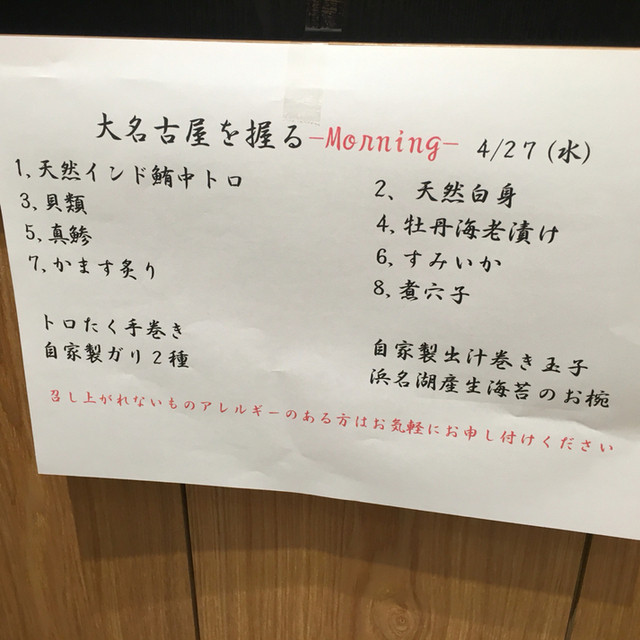 大名古屋を握る-Morning- 4/27(水)
1、天然インド鮪中トロ
2、天然白身
3、貝類
4、牡丹海老漬け
5、真鯵
6、すみいか
7、かます炙り
8、煮穴子
トロたく手巻き
自家製ガリ2種
自家製出汁巻き玉子
浜名湖産生海苔のお椀
召し上がれないものアレルギーのある方はお気軽にお申し付けください